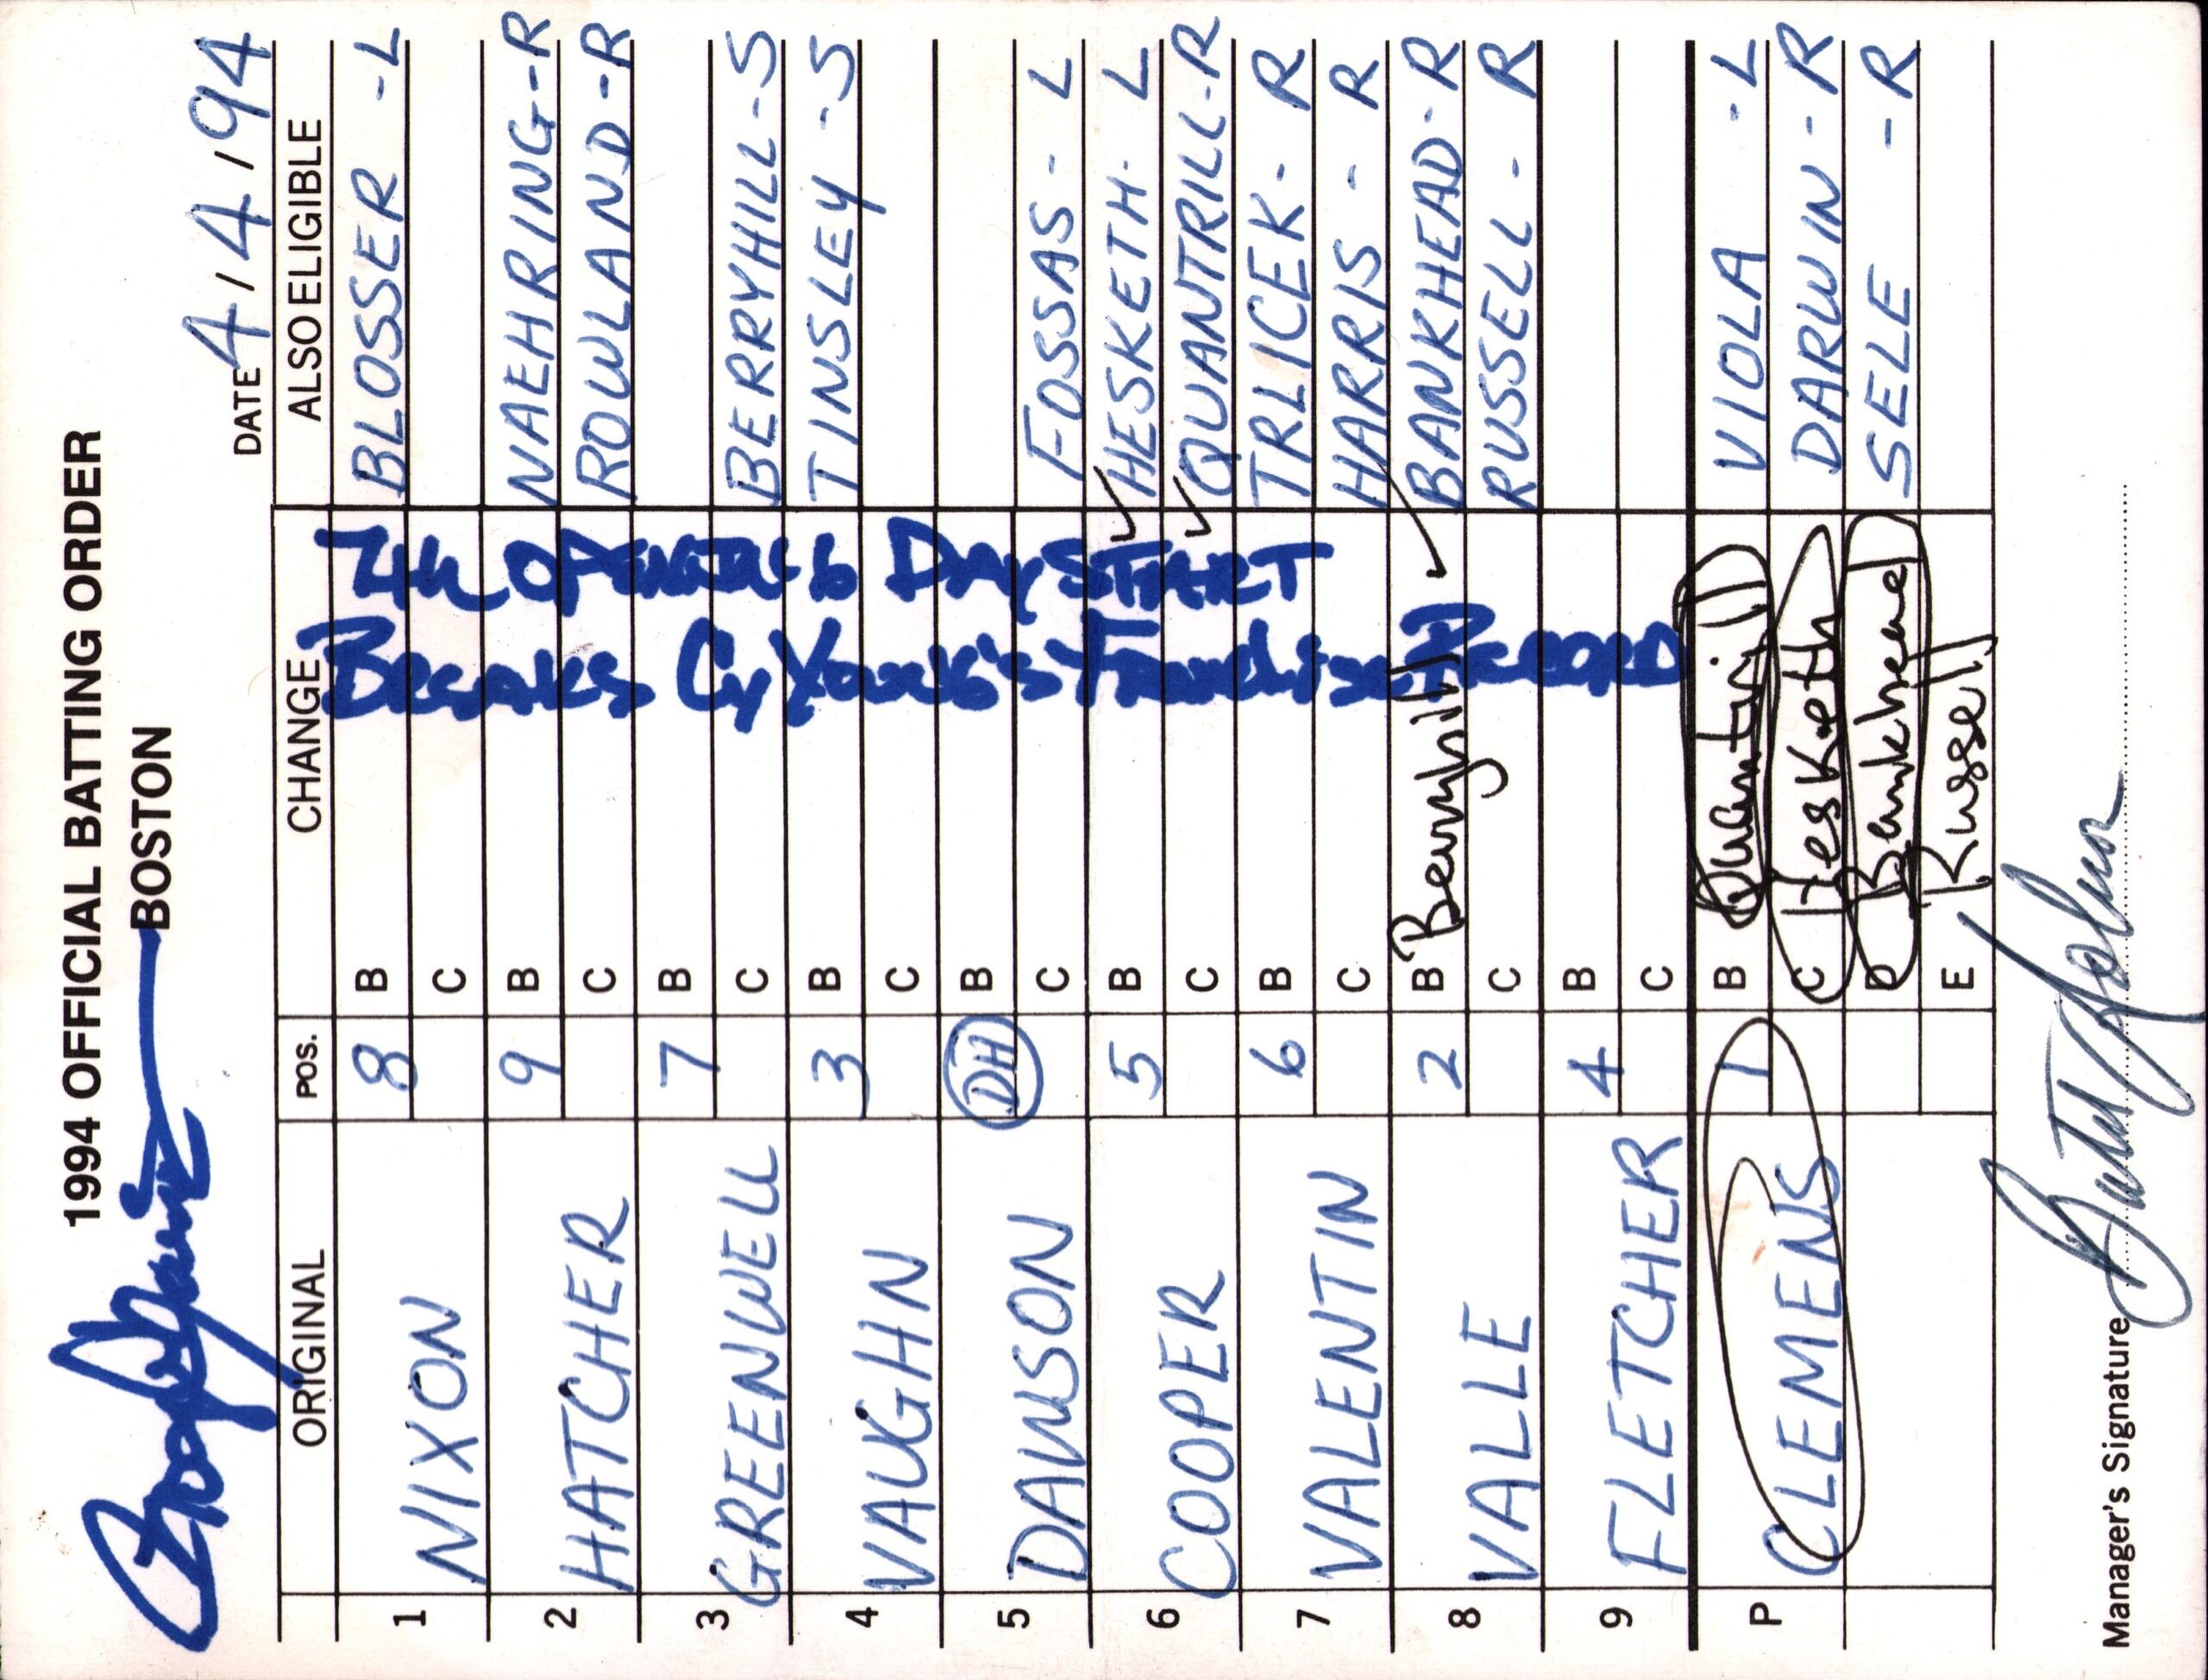 1994 OFFICIAL BATTING ORDER
BOSTON
DATE 4/4/94
ORIGINAL POS. CHANGE ALSO ELIGIBLE
1 NIXON 8 B BLOSSER - L
C
2 HATCHER 9 B NAEHRING - R
C ROWLAND - R
3 GREENWELL 7 B
C BERRYHILL - S
4 VAUGHN 3 B TINSLEY - S
C
5 DAWSON DH B
C FOSSAS - L
6 COOPER 5 B HESKETH - L
C QUANTRILL - R
7 VALENTIN 6 B TRLICEK - R
C HARRIS - R
8 VALLE 2 B Berryhill BANKHEAD - R
C RUSSELL - R
9 FLETCHER 4 B
C
P CLEMENS 1 B Quantrill VIOLA - L
C Hesketh DARWIN - R
D Bankhead SELE - R
E Russell
7th OPENING DAY START
BREAKS CY YOUNG'S Franchise RECORD
Manager's Signature Butch Hobson